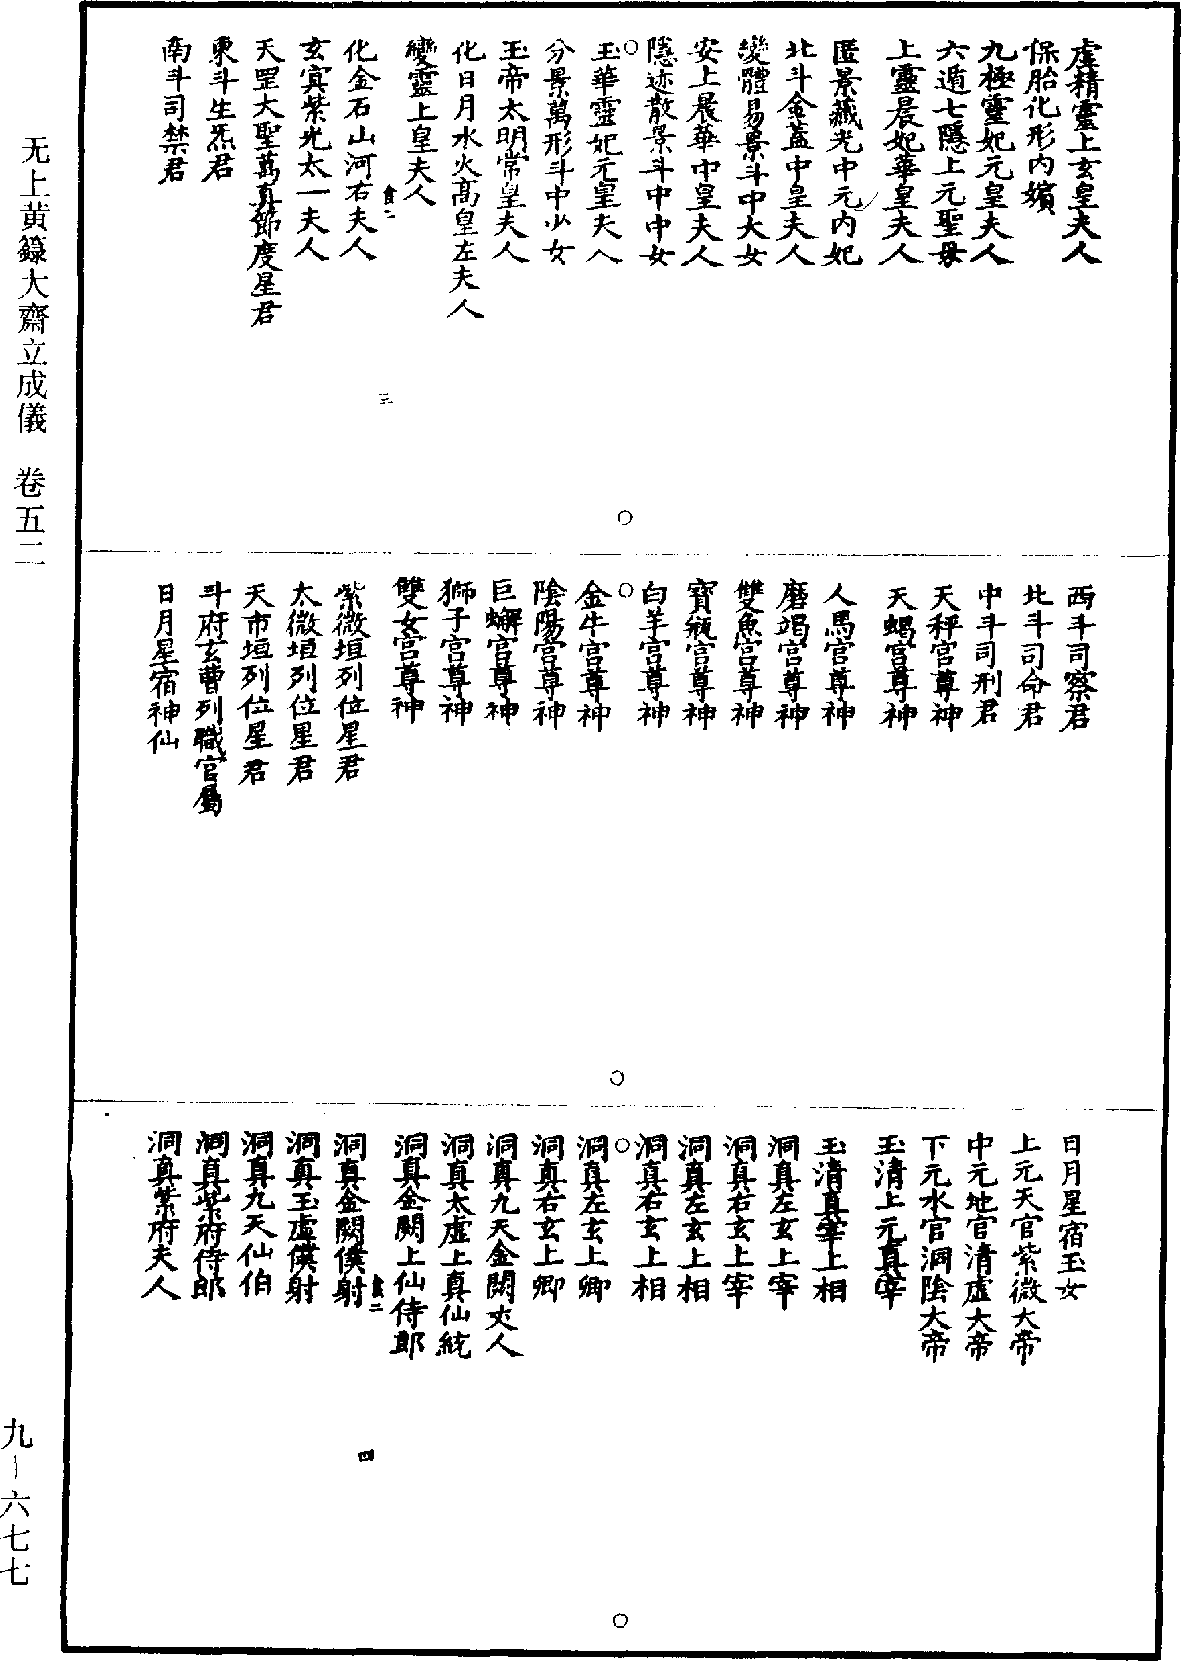 虛精靈上玄皇夫人
保胎化形内嬪
九極靈妃元皇夫人
六遁七隱上元聖母
上靈晨妃華皇夫人
匿景藏光中元内妃
北斗金蓋中皇夫人
變體易景斗中大女
安上晨華中皇夫人
隱迹散景斗中中女
玉華靈妃元皇夫人
分景萬形斗中少女
玉帝太明常皇夫人
化日月水火高皇左夫人
變靈上皇夫人
化金石山河右夫人
玄寘紫光太一夫人
天罡大聖萬真節度星君
東斗生炁君
南斗司禁君
三
西斗司察君
北斗司命君
中斗司刑君
天秤宮尊神
天蝎宮尊神
人馬宮尊神
磨竭宮尊神
雙魚宮尊神
寶瓶宮尊神
白羊宮尊神
金牛宮尊神
陰陽宮尊神
巨蠏宮尊神
獅子宮尊神
雙女宮尊神
紫微垣列位星君
太微垣列位星君
天市垣列位星君
斗府玄曹列職官屬
日月星宿神仙
日月星宿玉女
上元天官紫微大帝
中元地官清虛大帝
下元水官洞陰大帝
玉清上元真宰
玉清真宰上相
洞真左玄上宰
洞真右玄上宰
洞真左玄上相
洞真右玄上相
洞真左玄上卿
洞真右玄上卿
洞真九天金闕丈人
洞真太虛上真仙統
洞真金闕上仙侍郎
洞真金闕僕射
洞真玉虛僕射
洞真九天仙伯
洞真紫府侍郎
洞真紫府夫人
四
无上黄籙大齋立成儀　卷五二
九－六七七